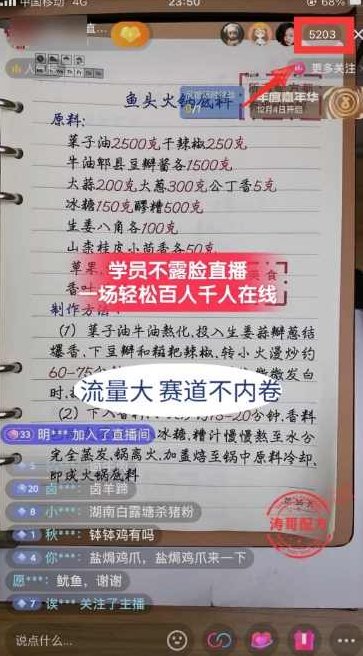 中国移动 4G
23:50
68%
直…
5203
人
更多关注
年度嘉年华
12月4日开启
鱼头火锅底料
原料:
菜子油2500克干辣椒250克
牛油郫县豆瓣酱各1500克
大蒜200克大葱300克公丁香5克
冰糖150克醪糟500克
生姜八角各100克
山柰桂皮小茴香各50克
草果
学员不露脸直播
美食
一场轻松百人千人在线
香叶
制作方法:
(1) 菜子油牛油熬化,投入生姜蒜瓣葱结
爆香,下豆瓣和糍粑辣椒,转小火漫炒约
60-75
微微发白
时,
流量大 赛道不内卷
(2) 下入香料
15-20分钟,香料
33 明*** 加入了直播间
冰糖,糟汁慢慢熬至水分
完全蒸发,锅离火,加盖焐至锅中原料冷却,
即成火锅底料
5
20 卤***: 卤羊蹄
8 小***: 湖南白露塘杀猪粉
1 秋***: 钵钵鸡有吗
4 你***: 盐焗鸡爪,盐焗鸡爪来一下
愿***: 鱿鱼,谢谢
7 诶*** 关注了主播
涛哥配方
说点什么...